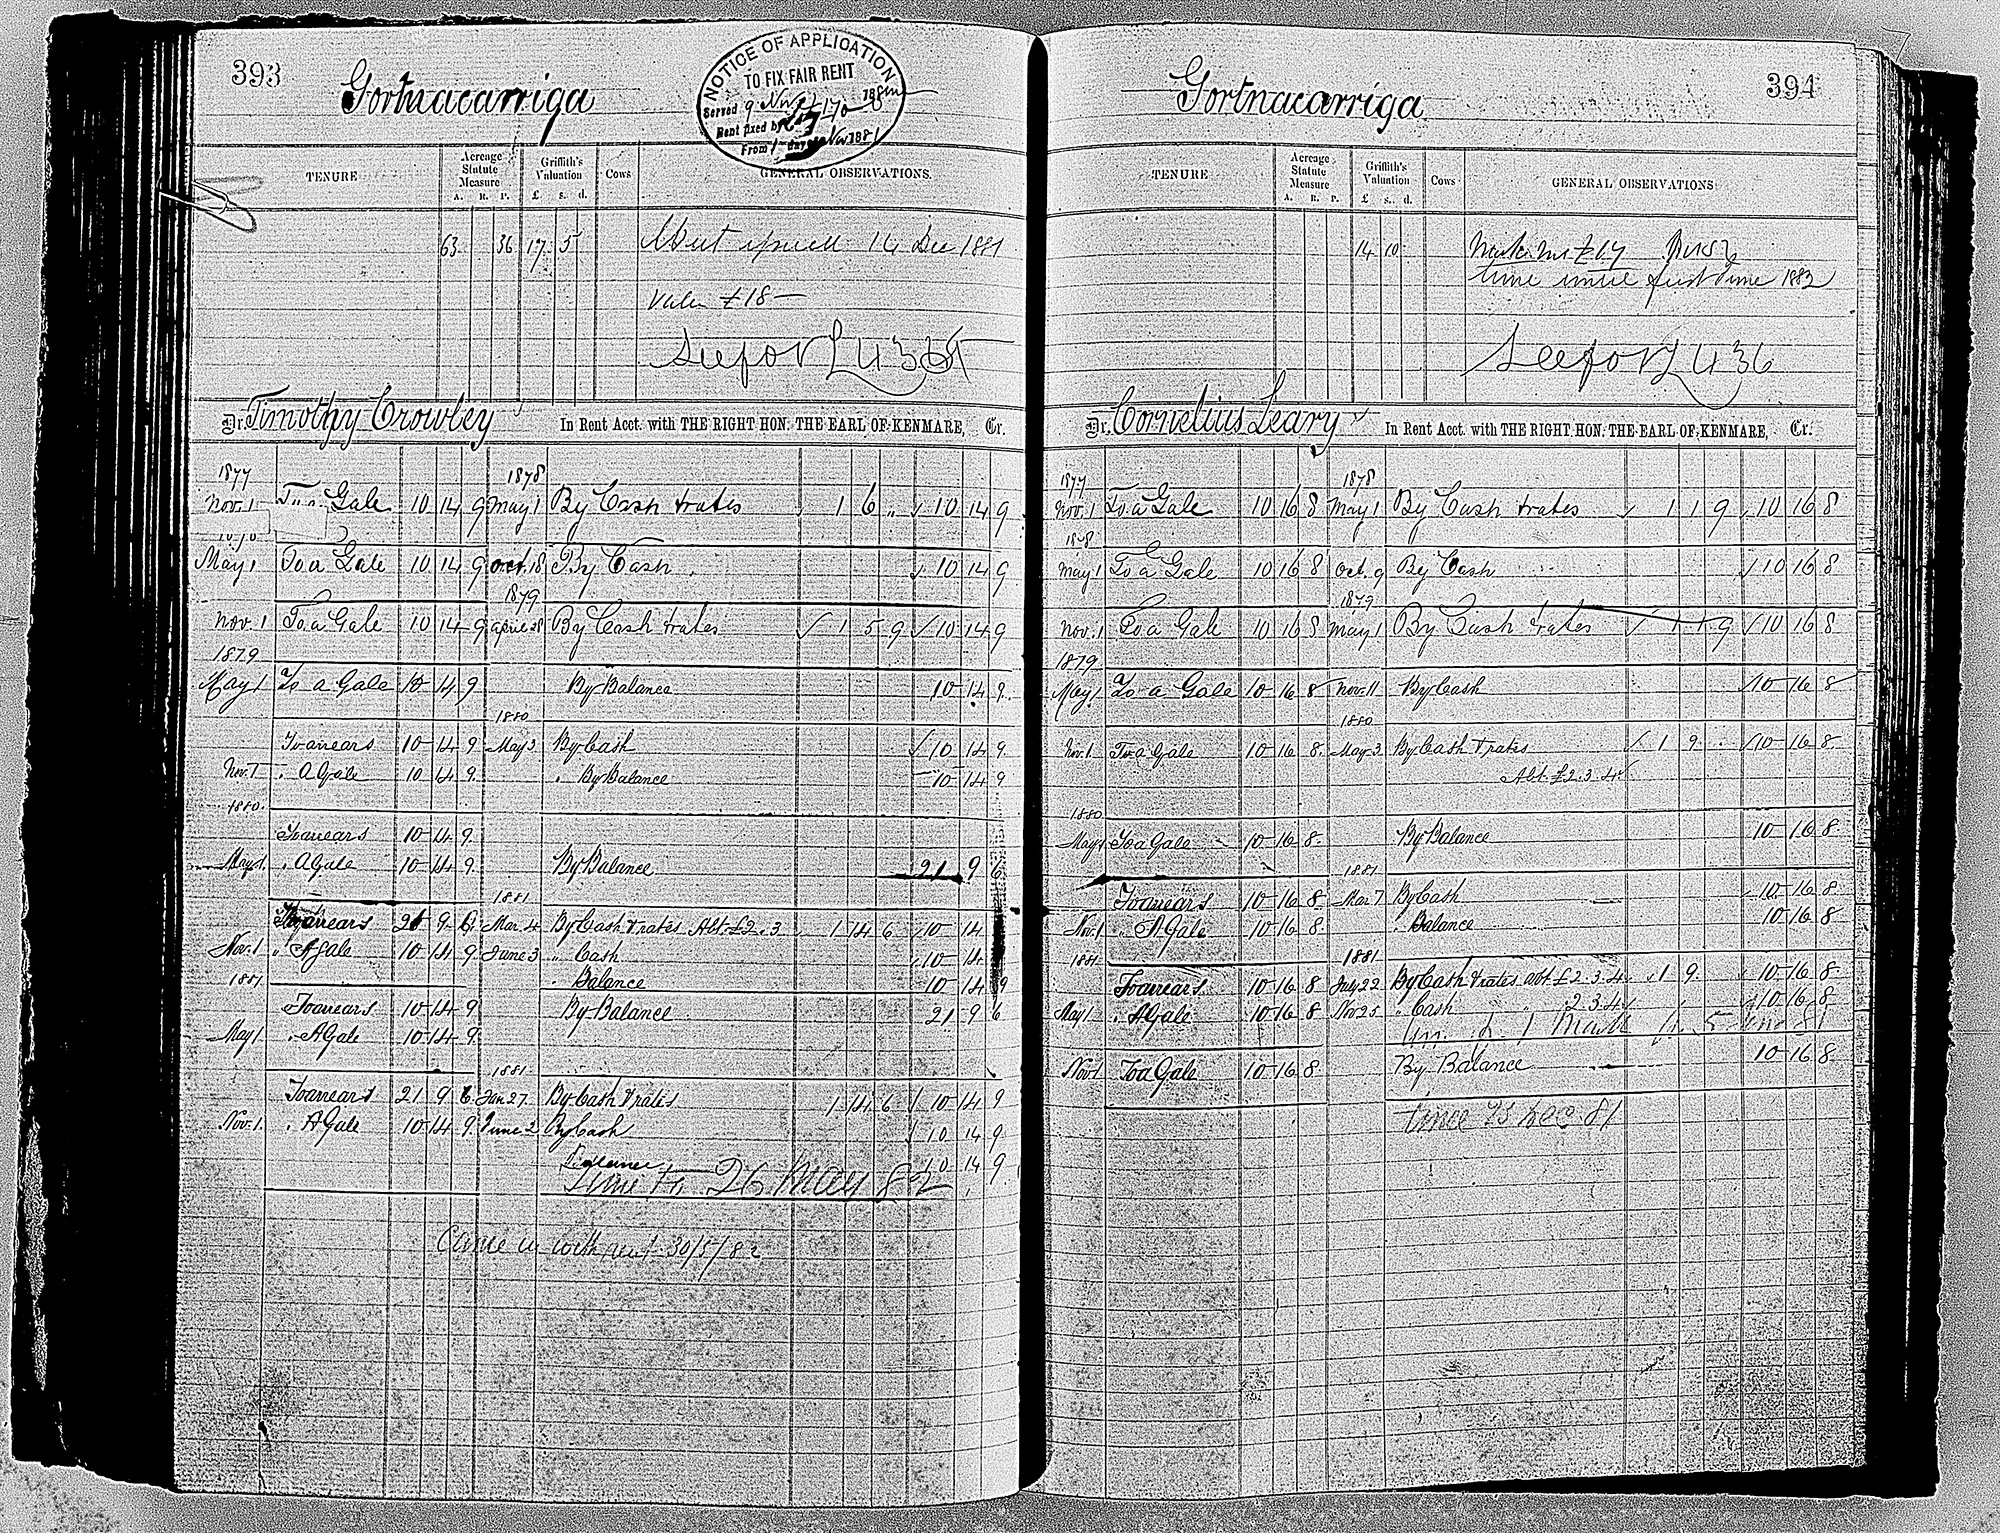 393
Gortnacarriga
NOTICE OF APPLICATION
TO FIX FAIR RENT
Served 9 Nov
Rent fixed by
From 1 day Nov 1881
TENURE Acreage Statute Measure Griffith's Valuation Cows GENERAL OBSERVATIONS.
A. R. P. £ s. d.
63 36 17 5 14 Dec 1881
£18 —
See for L 435
Dr. Timothy Crowley In Rent Acct. with THE RIGHT HON. THE EARL OF KENMARE, Cr.
1877 1878
Nov. 1 To a Gale 10 14 9 May 1 By Cash & rates 1 6 " 10 14 9
May 1 To a Gale 10 14 9 Oct. 18 By Cash 10 14 9
1879
Nov. 1 To a Gale 10 14 9 April 28 By Cash & rates 1 5 9 10 14 9
1879
May 1 To a Gale 10 14 9 By Balance 10 14 9
1880
To arrears 10 14 9 May 3 By Cash 10 14 9
Nov. 1 " A Gale 10 14 9 " By Balance 10 14 9
1880
To arrears 10 14 9
May 1 " A Gale 10 14 9 By Balance 21 9 6
1881
To arrears 21 9 6 Mar. 4 By Cash & rates Abt. £2.3 1 14 6 10 14
Nov. 1 " A Gale 10 14 9 June 3 " Cash 10 14
1881 " Balance 10 14 9
To arrears 10 14 9 By Balance 21 9 6
May 1 " A Gale 10 14 9
1881
To arrears 21 9 6 Jan 27 By Cash & rates 1 14 6 10 14 9
Nov. 1 " A Gale 10 14 9 June 2 By Cash 10 14 9
10 14 9
Time to 26 May 82
Came in with rent 30/5/82
394
Gortnacarriga
TENURE Acreage Statute Measure Griffith's Valuation Cows GENERAL OBSERVATIONS
A. R. P. £ s. d.
14 10 £17
time until first June 1882
See for L 436
Dr. Cornelius Leary In Rent Acct. with THE RIGHT HON. THE EARL OF KENMARE, Cr.
1877 1878
Nov. 1 To a Gale 10 16 8 May 1 By Cash & rates 1 1 9 10 16 8
1878
May 1 To a Gale 10 16 8 Oct. 9 By Cash 10 16 8
1879
Nov. 1 To a Gale 10 16 8 May 1 By Cash & rates 1 1 9 10 16 8
1879
May 1 To a Gale 10 16 8 Nov. 11 By Cash 10 16 8
1880
Nov. 1 To a Gale 10 16 8 May 3 By Cash & rates 1 9 10 16 8
Abt. £2.3.4
1880
May 1 To a Gale 10 16 8 By Balance 10 16 8
1881
To arrears 10 16 8 Mar 7 By Cash 10 16 8
Nov. 1 " A Gale 10 16 8 " Balance 10 16 8
1881 1881
To arrears 10 16 8 July 22 By Cash & rates abt. £2.3.4 1 9 10 16 8
May 1 " A Gale 10 16 8 Nov 25 " Cash " 2.3.4 10 16 8
Nov. 1 To a Gale 10 16 8 By Balance 10 16 8
time 23 Dec 81